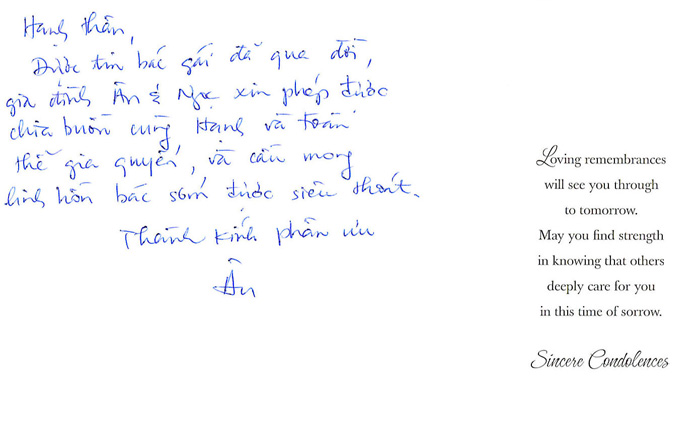 Hạnh thân,
Được tin bác gái đã qua đời,
gia đình Ân & Ngọc xin phép được
chia buồn cùng Hạnh và toàn
thể gia quyến, và cầu mong
linh hồn bác sớm được siêu thoát.
Thành kính phân ưu
Ân
Loving remembrances
will see you through
to tomorrow.
May you find strength
in knowing that others
deeply care for you
in this time of sorrow.
Sincere Condolences